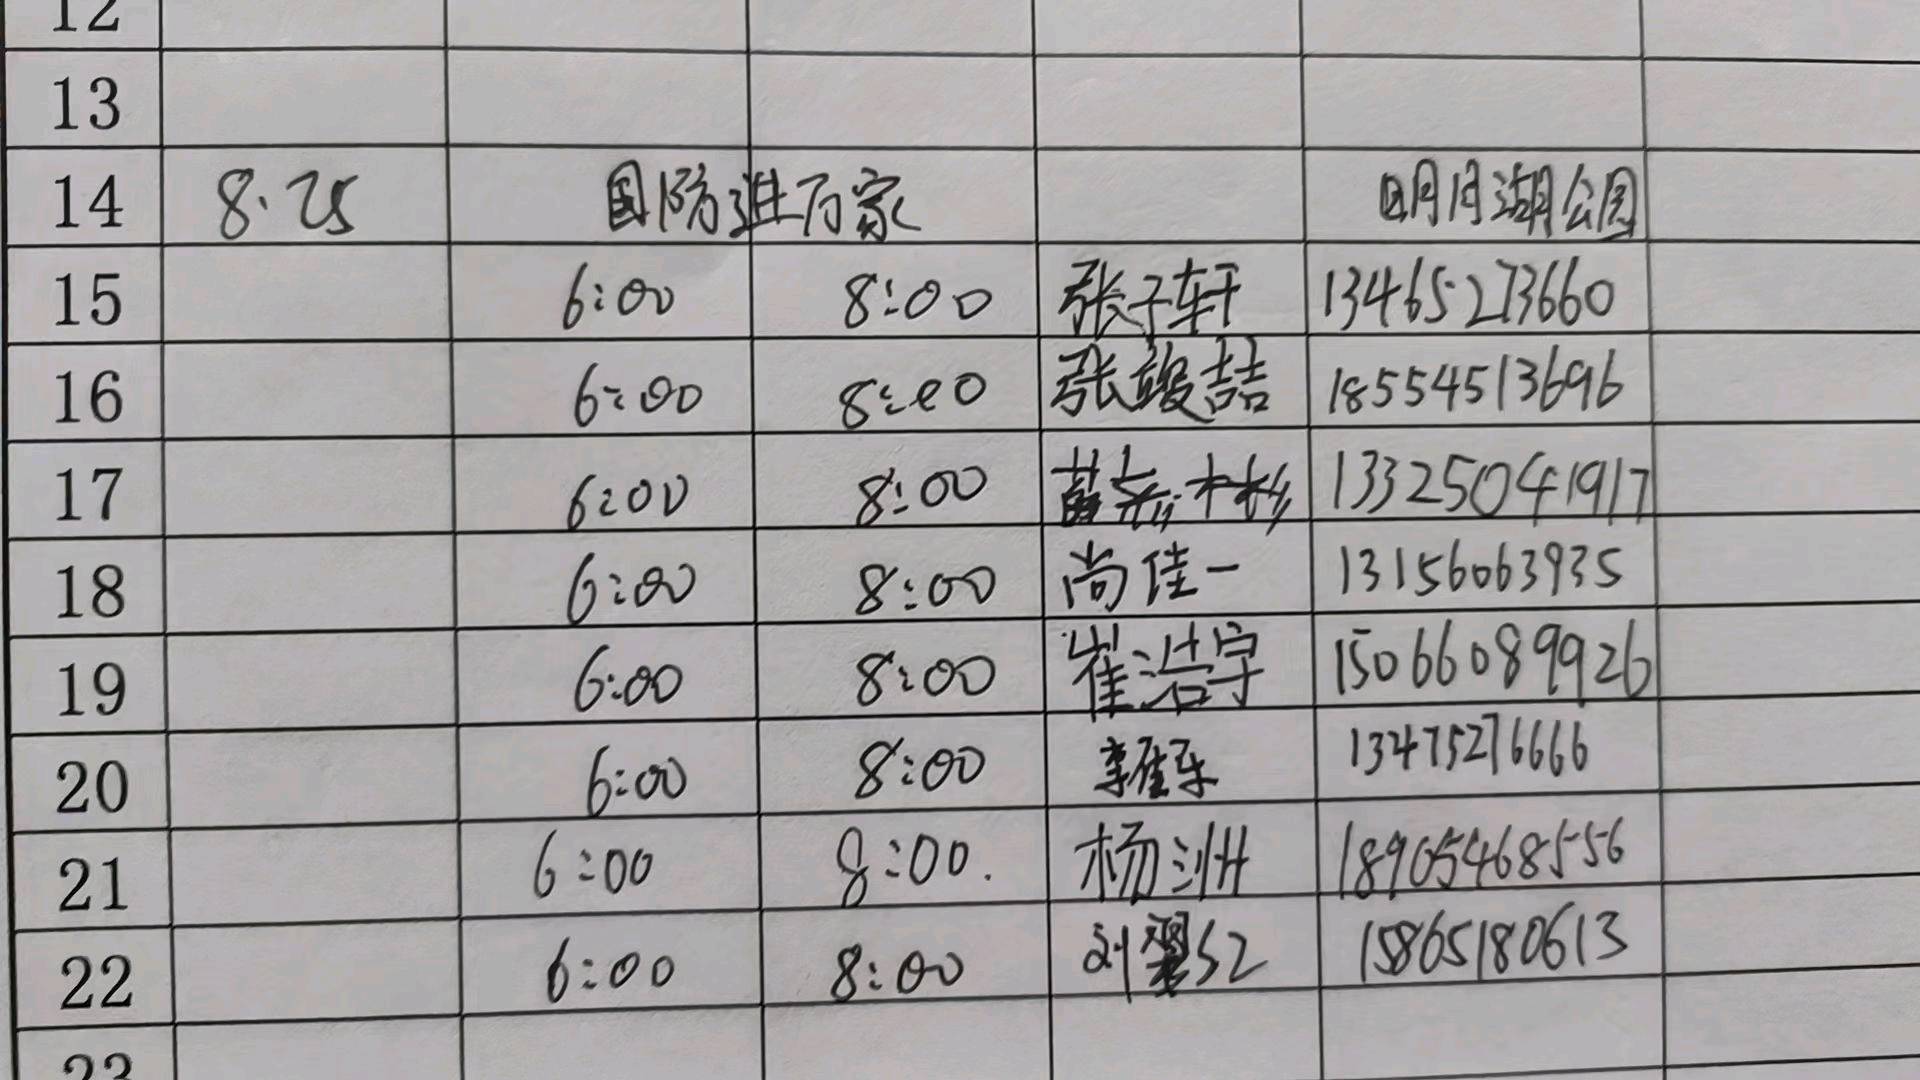 12
13
14 8.25 国防进万家 明月湖公园
15 6:00 8:00 张子轩 13465273660
16 6:00 8:00 张竣喆 18554513696
17 6:00 8:00 13325041917
18 6:00 8:00 尚佳一 13156063935
19 6:00 8:00 崔浩宇 15066089926
20 6:00 8:00 李佳乐 13475276666
21 6:00 8:00. 杨洲 18905468556
22 6:00 8:00 刘 15865180613
23